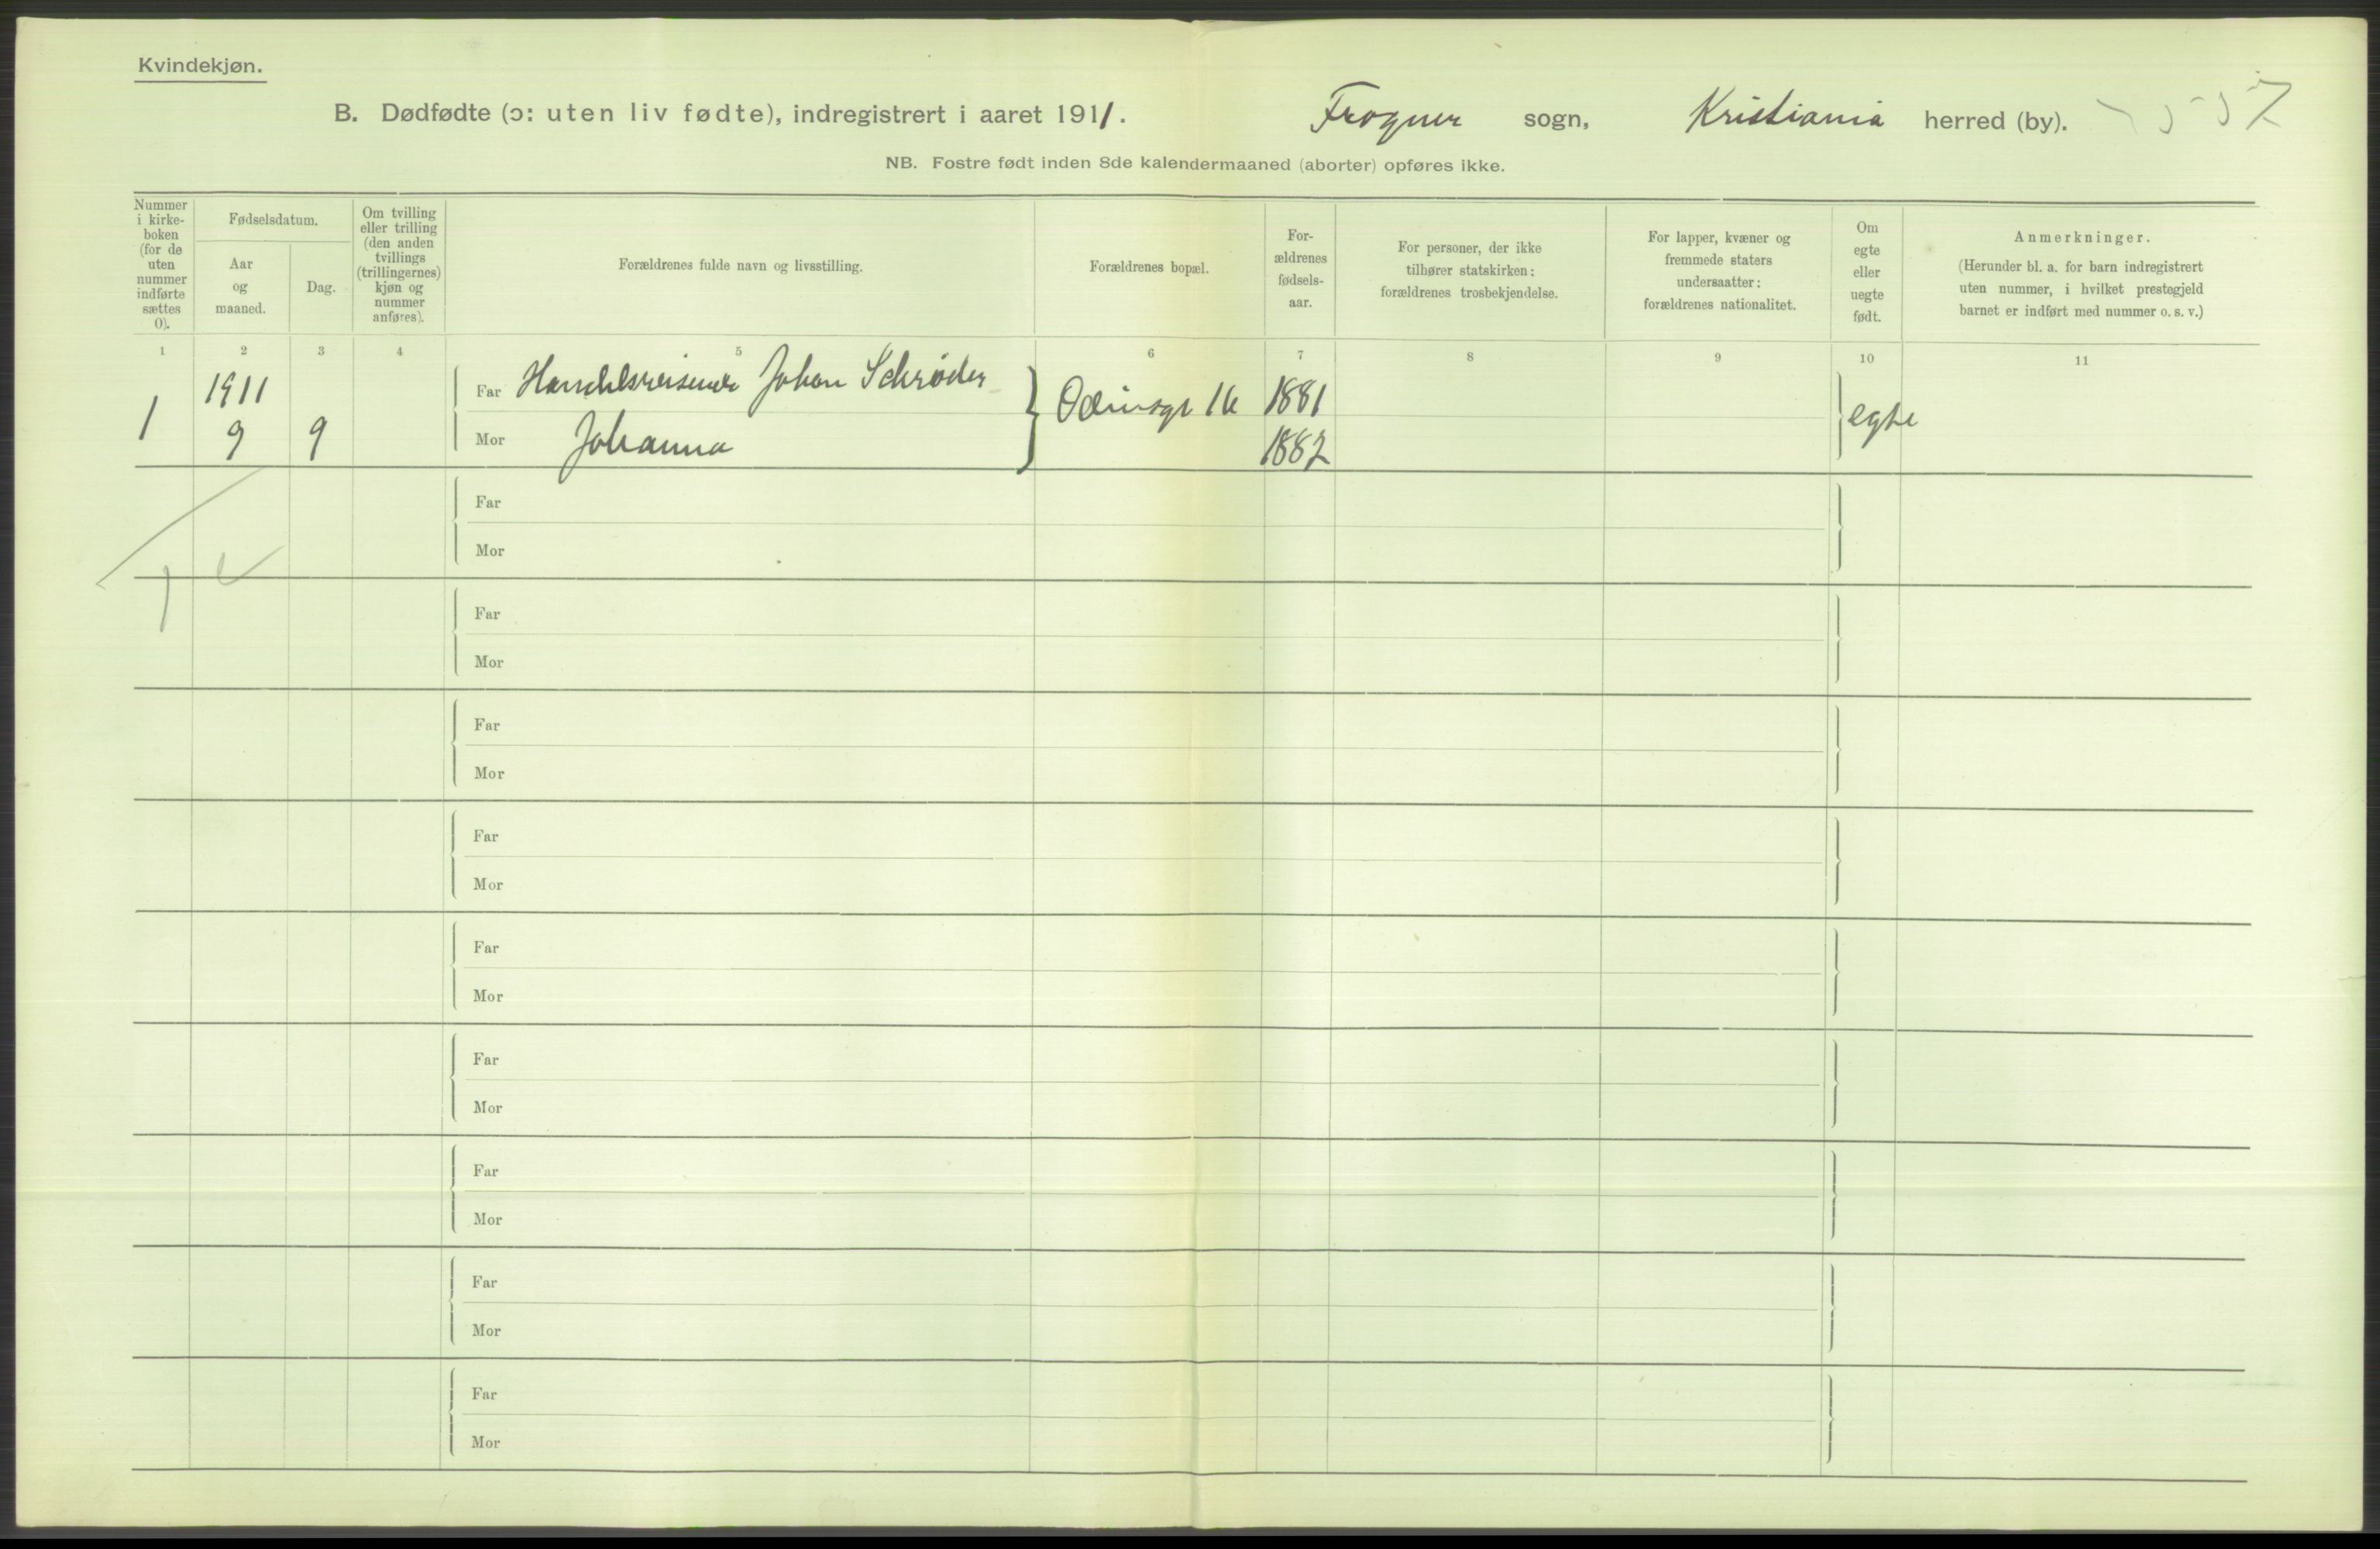 Kvindekjøn.
B. Dødfødte (ɔ: uten liv fødte), indregistrert i aaret 1911. Frogner sogn, Kristiania herred (by).
NB. Fostre født inden 8de kalendermaaned (aborter) opføres ikke.
Nummer
i kirke-
boken
(for de
uten
nummer
indførte
sættes
0).
Fødselsdatum.
Aar
og
maaned.
Dag.
Om tvilling
eller trilling
(den anden
tvillings
(trillingernes)
kjøn og
nummer
anføres).
Forældrenes fulde navn og livsstilling.
Forældrenes bopæl.
For-
ældrenes
fødsels-
aar.
For personer, der ikke
tilhører statskirken:
forældrenes trosbekjendelse.
For lapper, kvæner og
fremmede staters
undersaatter:
forældrenes nationalitet.
Om
egte
eller
uegte
født.
Anmerkninger.
(Herunder bl. a. for barn indregistrert
uten nummer, i hvilket prestegjeld
barnet er indført med nummer o. s. v.)
1 2 3 4 5 6 7 8 9 10 11
1911 Far Handelsreisende Johan Schrøder Odinsgt 16 1881 egte
1 9 9 Mor Johanna 1882
Far
Mor
Far
Mor
Far
Mor
Far
Mor
Far
Mor
Far
Mor
Far
Mor
Far
Mor
Far
Mor